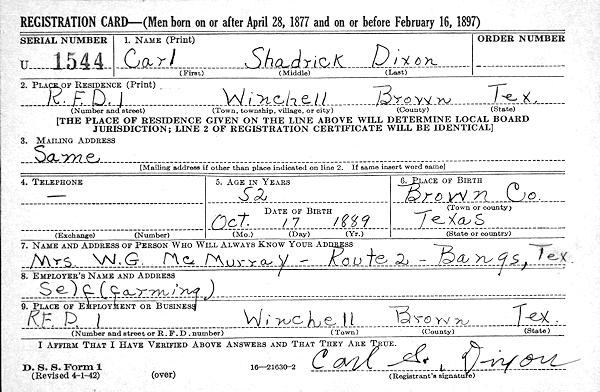 REGISTRATION CARD—(Men born on or after April 28, 1877 and on or before February 16, 1897)
SERIAL NUMBER 1. NAME (Print) ORDER NUMBER
U 1544 Carl Shadrick Dixon
(First) (Middle) (Last)
2. PLACE OF RESIDENCE (Print)
R.F.D. 1 Winchell Brown Tex.
(Number and street) (Town, township, village, or city) (County) (State)
[THE PLACE OF RESIDENCE GIVEN ON THE LINE ABOVE WILL DETERMINE LOCAL BOARD
JURISDICTION; LINE 2 OF REGISTRATION CERTIFICATE WILL BE IDENTICAL]
3. MAILING ADDRESS
Same
[Mailing address if other than place indicated on line 2. If same insert word same]
4. TELEPHONE 5. AGE IN YEARS 6. PLACE OF BIRTH
— 52 Brown Co.
DATE OF BIRTH (Town or county)
Oct. 17 1889 Texas
(Exchange) (Number) (Mo.) (Day) (Yr.) (State or country)
7. NAME AND ADDRESS OF PERSON WHO WILL ALWAYS KNOW YOUR ADDRESS
Mrs W.G. McMurray - Route 2 - Bangs, Tex.
8. EMPLOYER'S NAME AND ADDRESS
Self (farming)
9. PLACE OF EMPLOYMENT OR BUSINESS
R.F.D. 1 Winchell Brown Tex.
(Number and street or R. F. D. number) (Town) (County) (State)
I AFFIRM THAT I HAVE VERIFIED ABOVE ANSWERS AND THAT THEY ARE TRUE.
Carl S. Dixon
D. S. S. Form 1
(Revised 4-1-42) (over) 16—21630-2 (Registrant's signature)